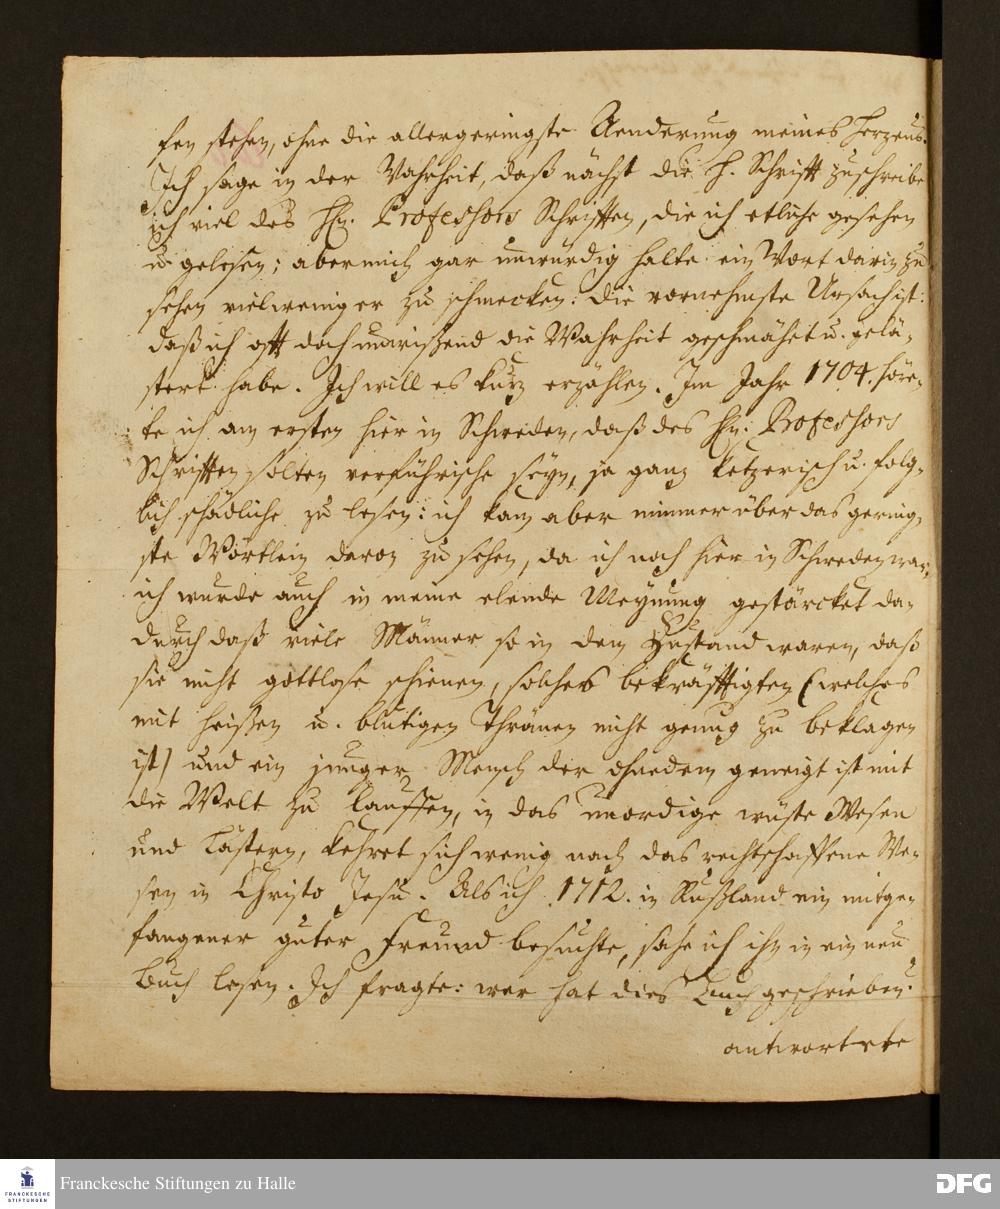 sen stehen, ohne die allergeringste Aenderung meines Herzens.
Ich sage in der Wahrheit, daß nächst die H. Schrifft zuschreibe
ich viel des Hn. Professhors Schrifften, die ich etliche gesehen
u. gelesen; aber mich gar unwürdig halte ein Wort darin zu
sehen vielweniger zu schmecken: die vornehmste Ursach ist:
daß ich offt doch unwißend die Wahrheit geschmähet u. gelä-
stert habe. Ich will es kurz erzählen. Im Jahr 1704. höre-
te ich am ersten hier in Schweden, daß des Hn. Professhors
Schrifften solten verführische seyn, ja ganz ketzerisch u. folg-
lich schädliche zu lesen: ich kam aber nimmer über das gering-
ste Wörtlein davon zu sehen, da ich noch hier in Schweden war,
ich wurde auch in meine elende Meynung gestärcket da-
durch daß viele Männer so in dem Zustand waren, daß
sie nicht gottlose schienen, solches bekräfftigten (welches
mit heißen u. blutigen Thränen nicht genug zu beklagen
ist) und ein junger Mensch der ohnedem geneigt ist mit
die Welt zu lauffen, in das unordige wüste Wesen
und Lästern, kehret sich wenig nach das rechtschaffene We-
sen in Christo Jesu. Als ich 1712. in Rußland ein mitge-
fangener guter Freund besuchte, sahe ich ihn in ein neu
Buch lesen. Ich fragte: wer hat dies Buch geschrieben?
antwortete
Franckesche Stiftungen zu Halle
FRANCKESCHE
STIFTUNGEN
DFG